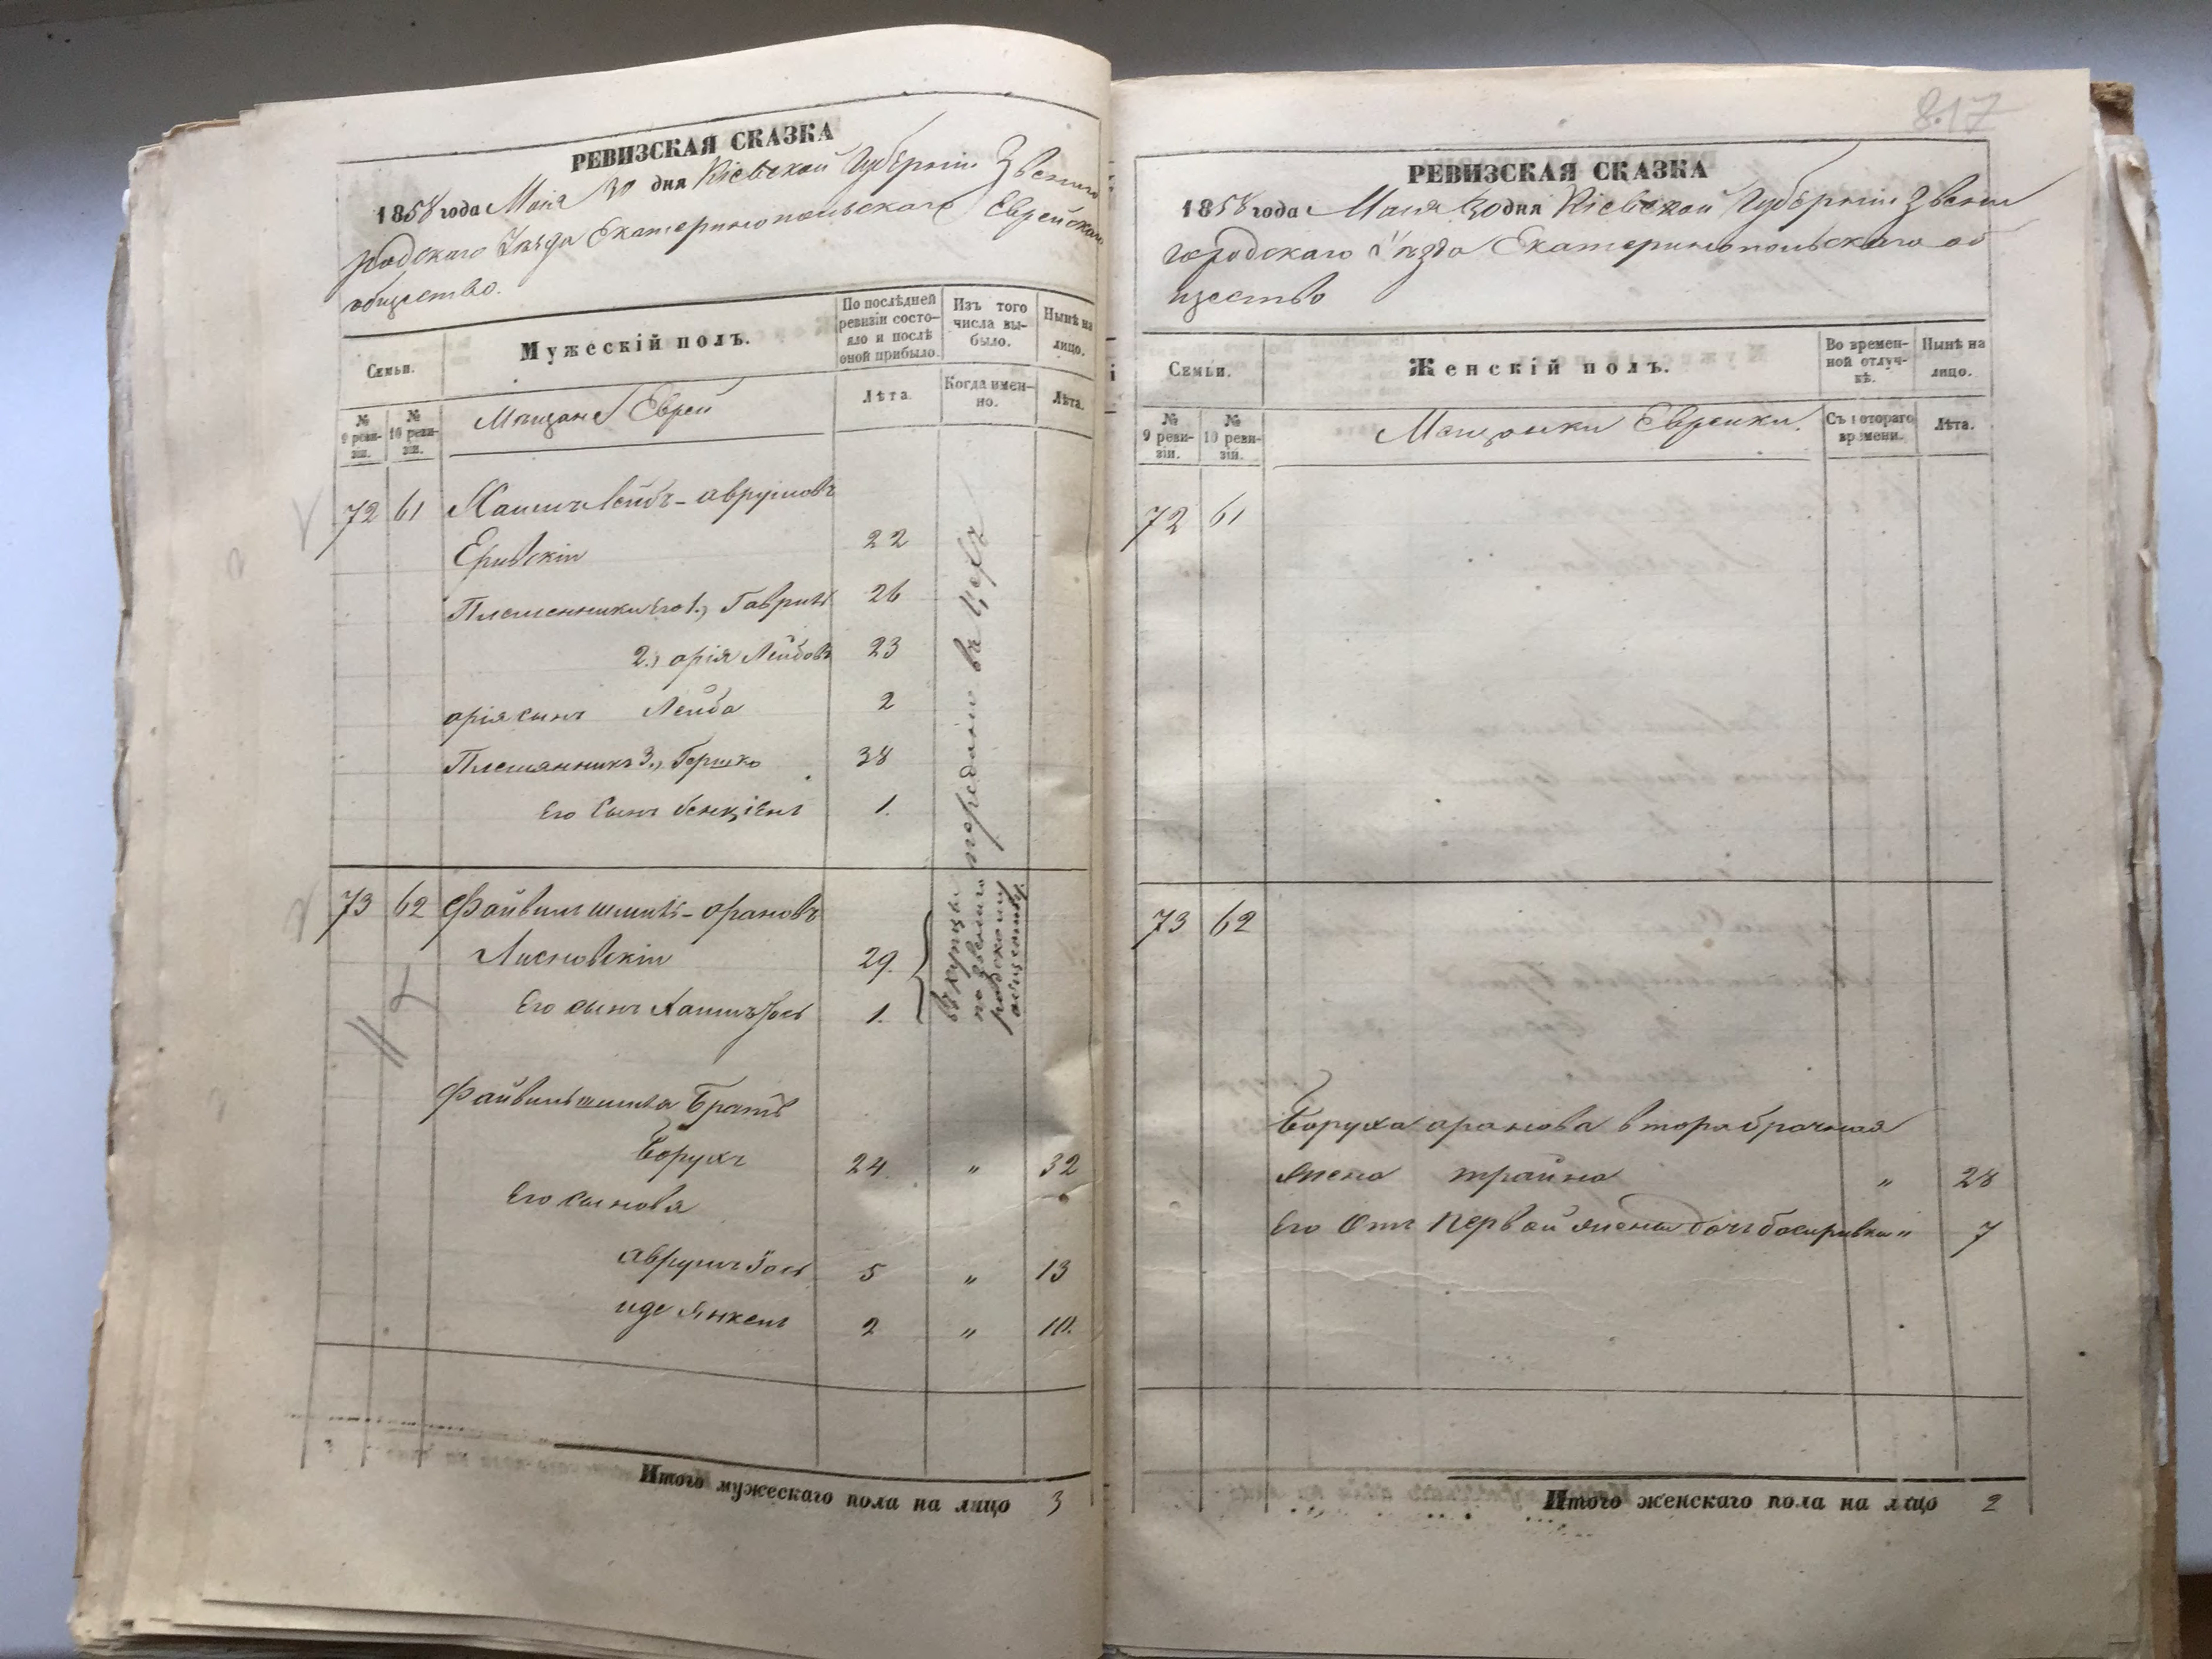 РЕВИЗСКАЯ СКАЗКА
1858 года Мая 30 дня Кіевской Губерніи Звениго
родскаго Уѣзда Екатеринопольскаго Еврейскаго
общество.
Семьи.
Мужескій полъ.
По послѣдней ревизіи состояло и послѣ оной прибыло.
Изъ того числа выбыло.
Нынѣ на лицо.
№ 9 ревизіи.
№ 10 ревизіи.
Мѣщане Евреи
Лѣта.
Когда именно.
Лѣта.
72 61 Хаимъ Лейбъ-Аврумовъ
Еривскій 22
Племенники его 1., Гаврилъ 26
2., Арія Лейбовъ 23
Арія сынъ Лейба 2
Племянникъ 3., Гершко 38
Его сынъ Бенціенъ 1.
передано въ
73 62 Файвишъ Шмилъ-Арановъ
Лисновскій 29.
Его сынъ Хаимъ Іось 1.
въ купцы по Звенигородскому обществу.
Файвишъ Шмила Братъ
Борухъ 24 „ 32
Его сыновя
Аврумъ Іось 5 „ 13
Иде Янкель 2 „ 10.
Итого мужескаго пола на лицо 3
817
РЕВИЗСКАЯ СКАЗКА
1858 года Мая 30 дня Кіевской Губерніи Звени
городскаго Уѣзда Екатеринопольскаго об
щество
Семьи.
Женскій полъ.
Во временной отлучкѣ.
Нынѣ на лицо.
№ 9 ревизіи.
№ 10 ревизіи.
Мещанки Еврейки.
Съ котораго времени.
Лѣта.
72 61
73 62
Боруха Аранова второбрачная
жена Трайна „ 28
Его отъ первой жены дочь Басиривка „ 7
Итого женскаго пола на лицо 2